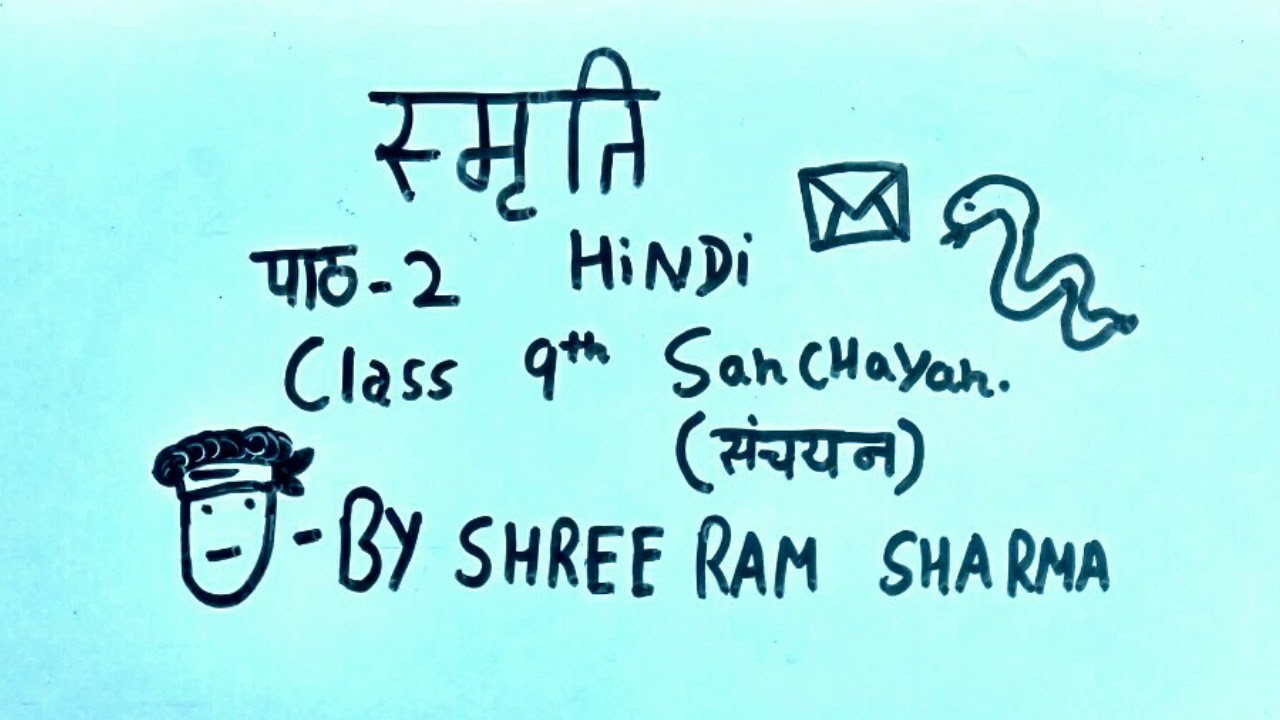 स्मृति
पाठ-2 HiNDi
Class 9th SanCHayan.
(संचयन)
- BY SHREE RAM SHARMA